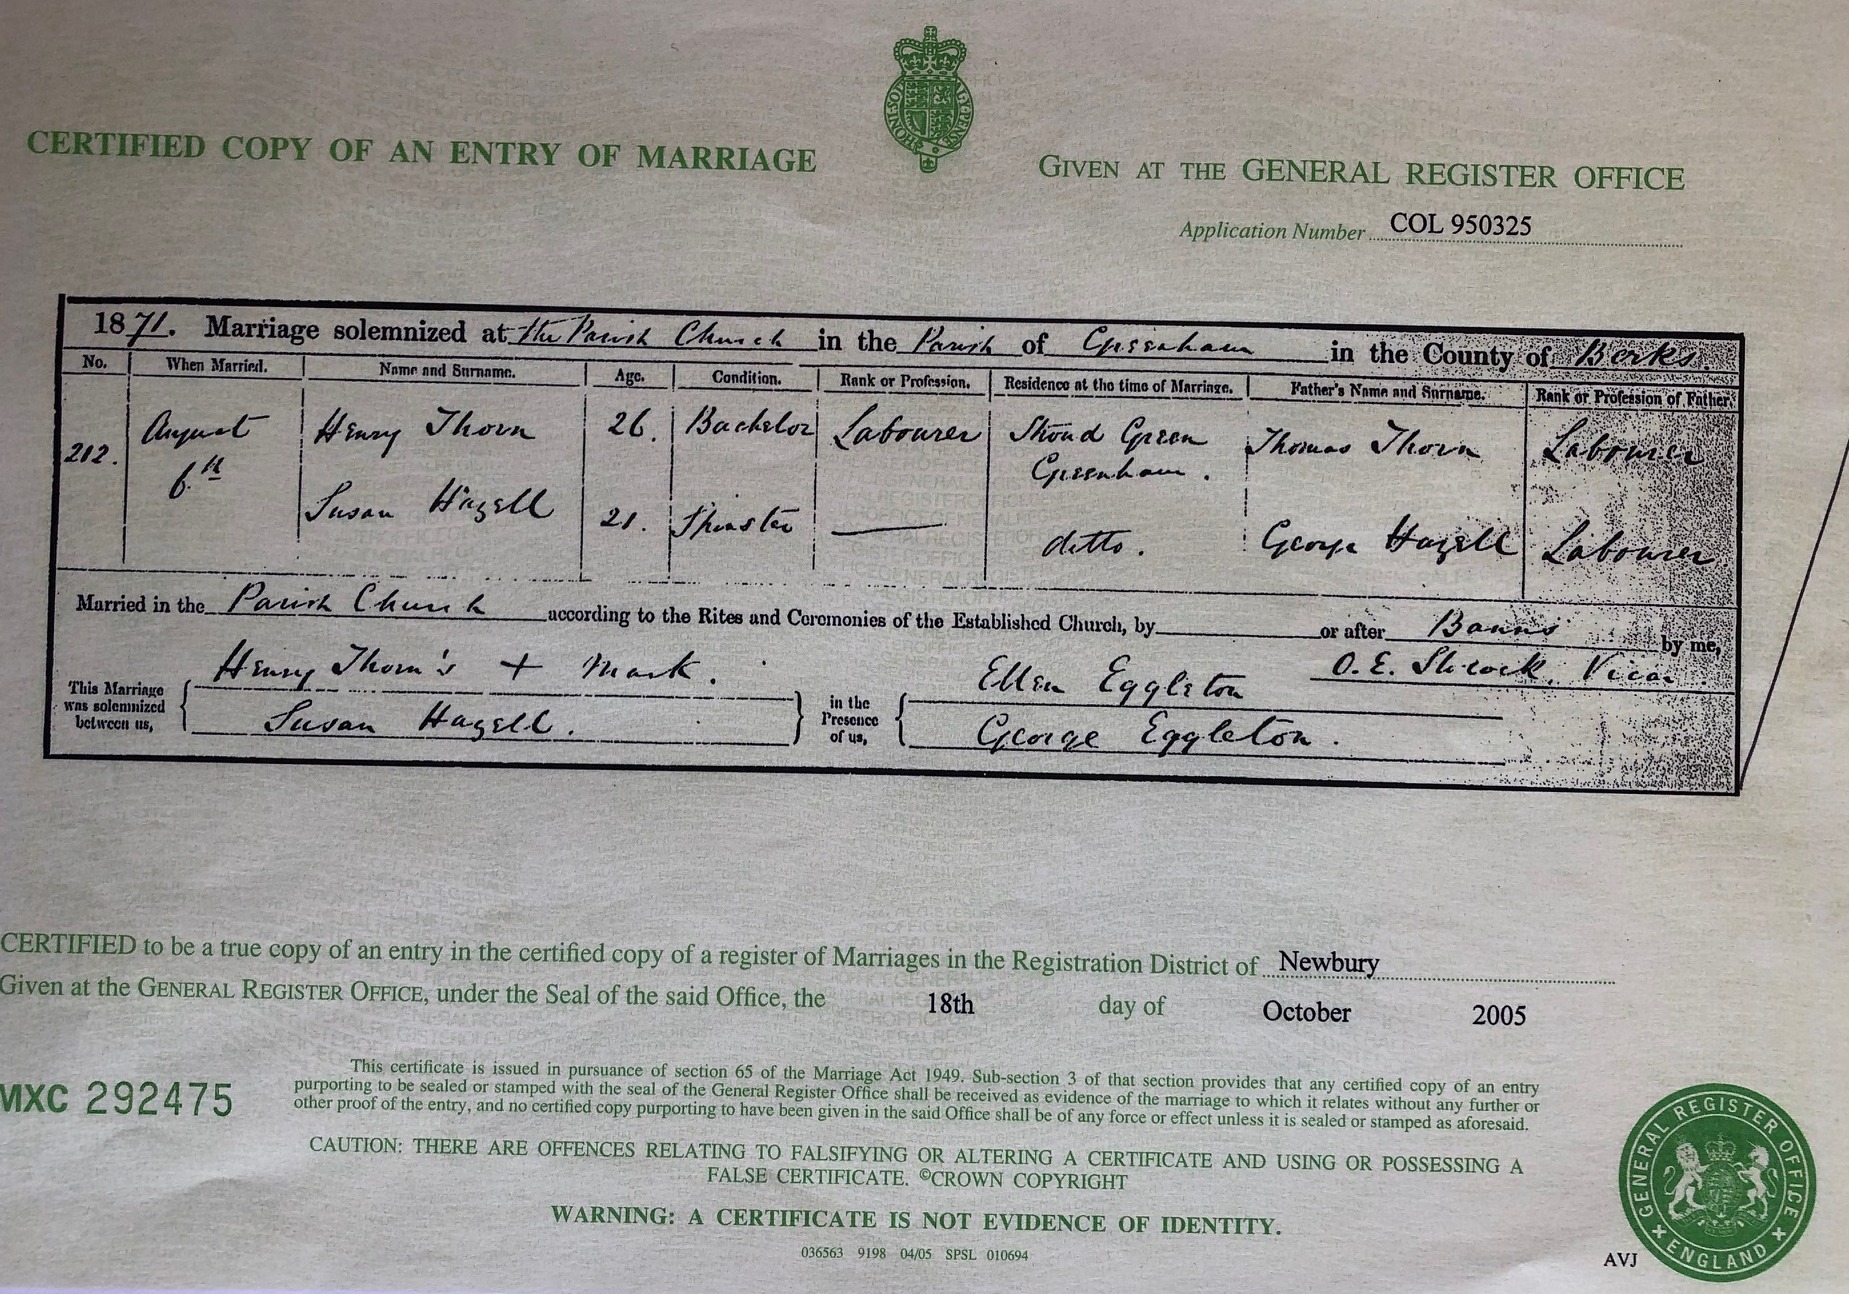 CERTIFIED COPY OF AN ENTRY OF MARRIAGE
GIVEN AT THE GENERAL REGISTER OFFICE
Application Number COL 950325
1871. Marriage solemnized at the Parish Church in the Parish of Greenham in the County of Berks.
No. When Married. Name and Surname. Age. Condition. Rank or Profession. Residence at the time of Marriage. Father's Name and Surname. Rank or Profession of Father.
212. August 6th Henry Thorn 26. Bachelor Labourer Stroud Green Greenham. Thomas Thorn Labourer
Susan Hazell 21. Spinster — ditto. George Hazell Labourer
Married in the Parish Church according to the Rites and Ceremonies of the Established Church, by or after Banns by me,
This Marriage was solemnized between us, Henry Thorn's + Mark. in the Presence of us, Ellen Eggleton O. E. Vicar
Susan Hazell. George Eggleton.
CERTIFIED to be a true copy of an entry in the certified copy of a register of Marriages in the Registration District of Newbury
Given at the GENERAL REGISTER OFFICE, under the Seal of the said Office, the 18th day of October 2005
MXC 292475
This certificate is issued in pursuance of section 65 of the Marriage Act 1949. Sub-section 3 of that section provides that any certified copy of an entry
purporting to be sealed or stamped with the seal of the General Register Office shall be received as evidence of the marriage to which it relates without any further or
other proof of the entry, and no certified copy purporting to have been given in the said Office shall be of any force or effect unless it is sealed or stamped as aforesaid.
CAUTION: THERE ARE OFFENCES RELATING TO FALSIFYING OR ALTERING A CERTIFICATE AND USING OR POSSESSING A
FALSE CERTIFICATE. ©CROWN COPYRIGHT
WARNING: A CERTIFICATE IS NOT EVIDENCE OF IDENTITY.
036563 9198 04/05 SPSL 010694
AVJ
GENERAL REGISTER OFFICE
ENGLAND